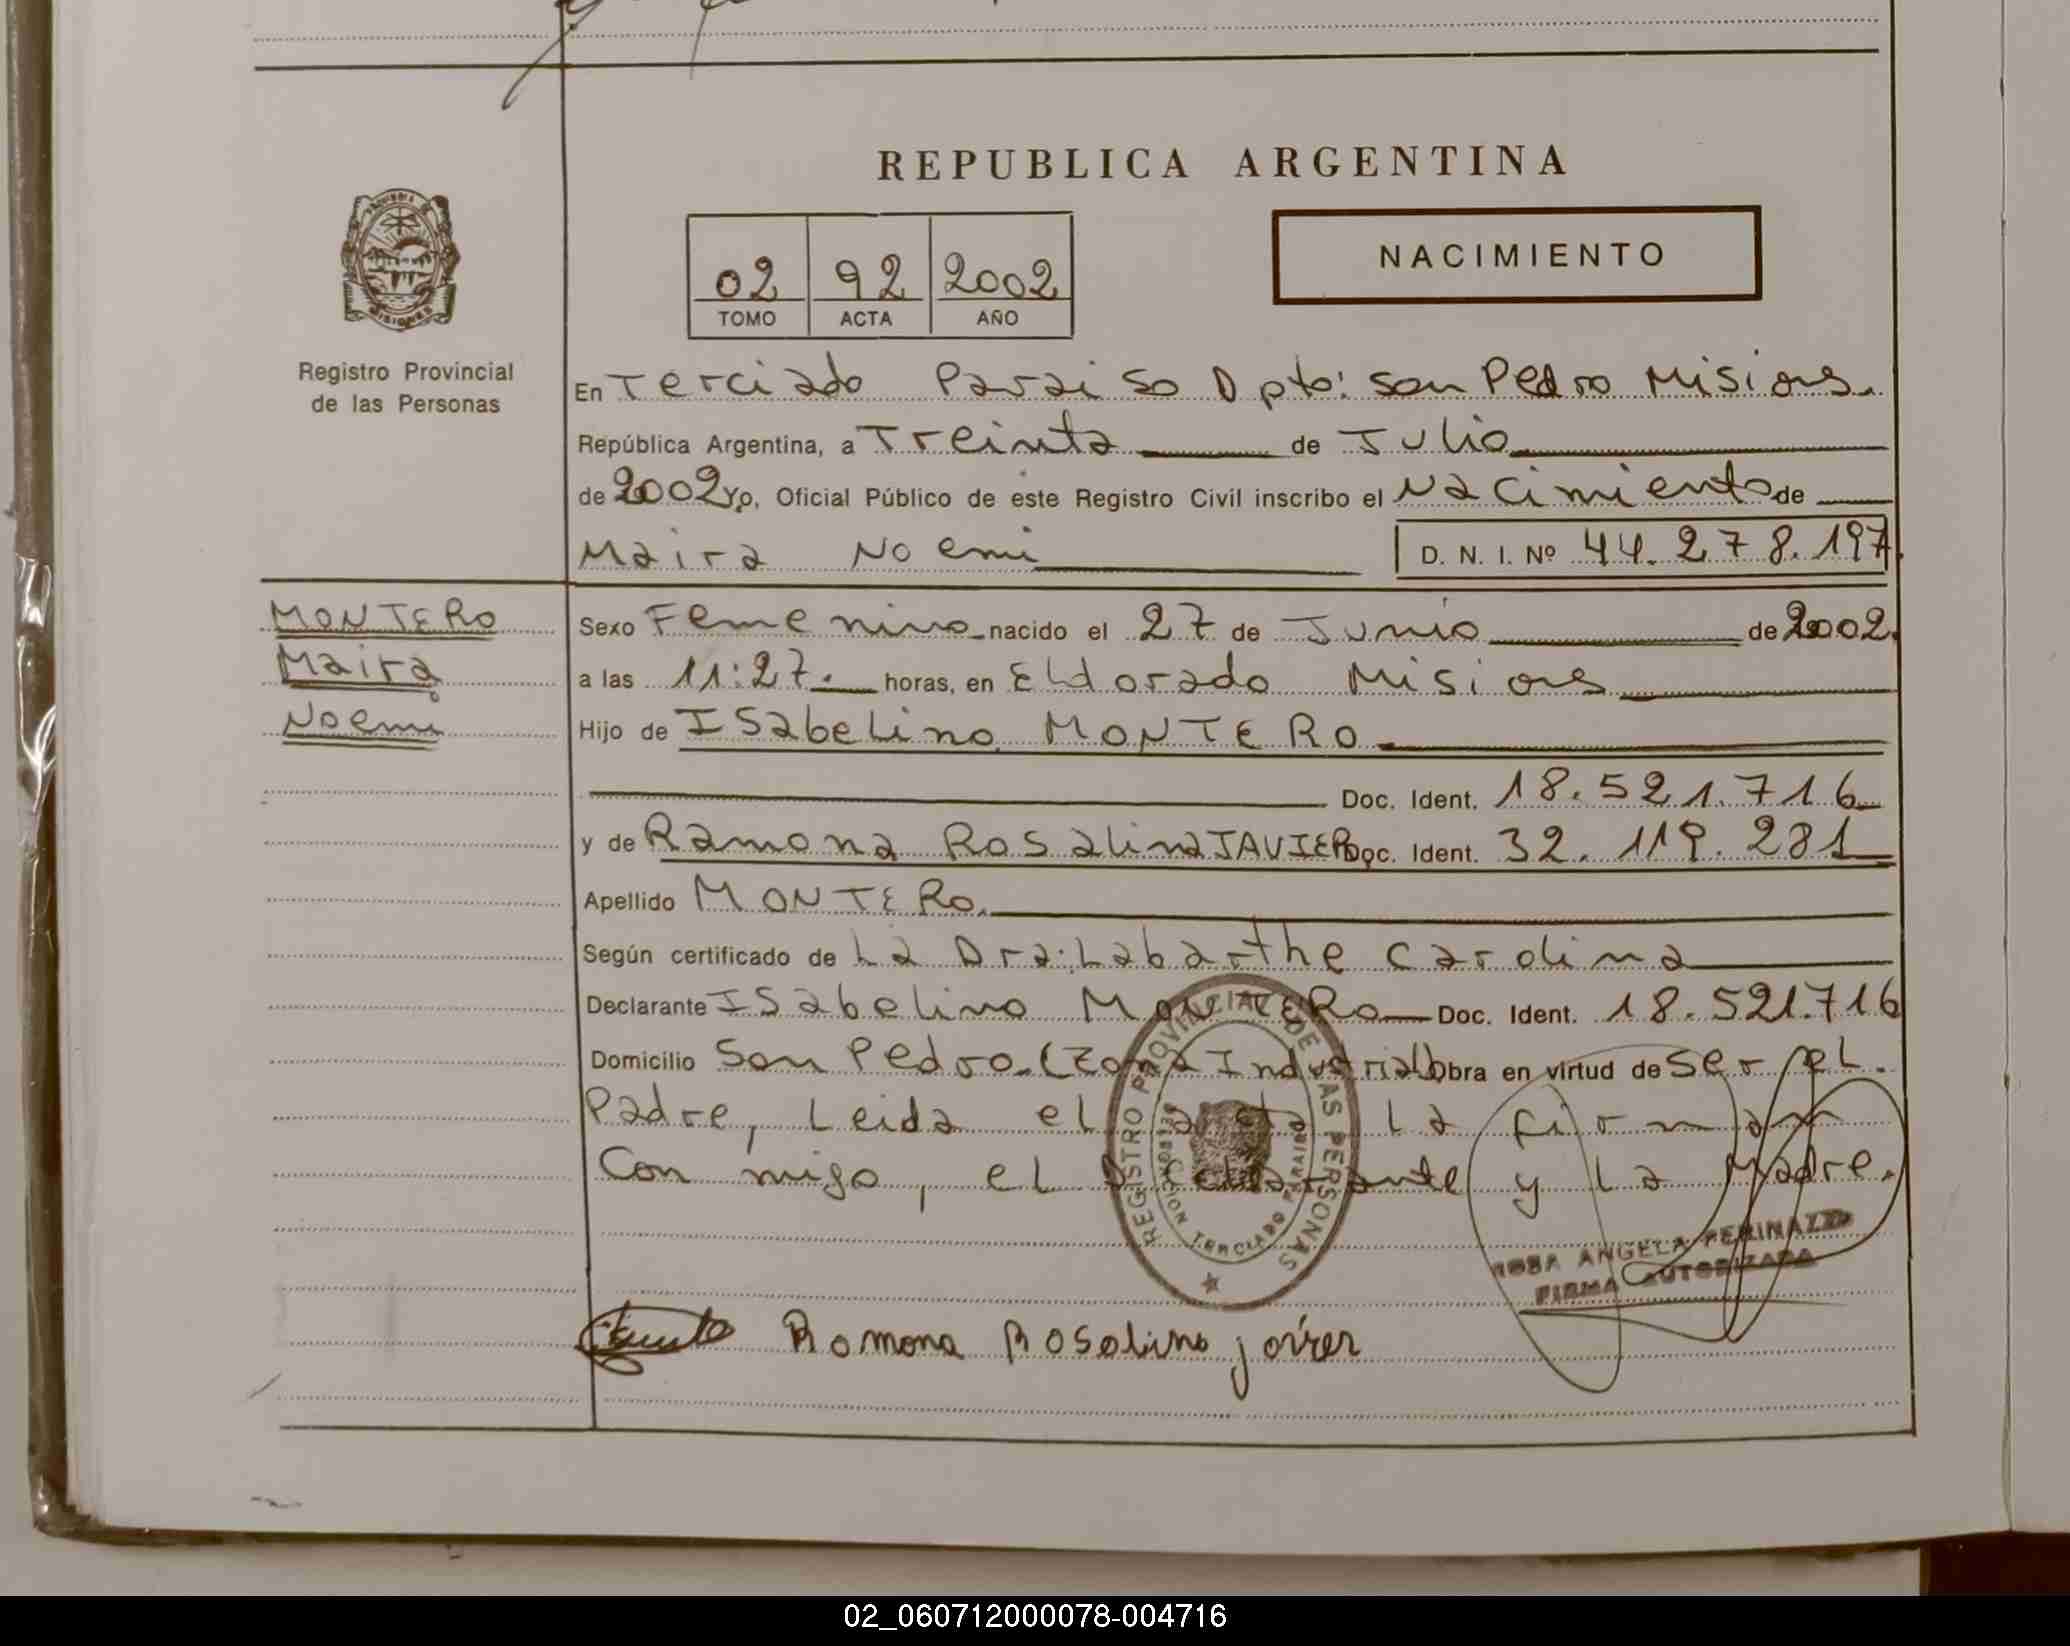 REPUBLICA ARGENTINA
NACIMIENTO
02 92 2002
TOMO ACTA AÑO
Registro Provincial
de las Personas
En Terciado Paraiso Dpto: San Pedro Misiones.
República Argentina, a Treinta de Julio
de 2002 Yo, Oficial Público de este Registro Civil inscribo el Nacimiento de
Maira Noemi D. N. I. Nº 44.278.197
MONTERO
Maira
Noemi
Sexo Femenino nacido el 27 de Junio de 2002.
a las 11:27. horas, en Eldorado Misiones
Hijo de Isabelino MONTERO
Doc. Ident. 18.521.716
y de Ramona Rosalina JAVIER Doc. Ident. 32.119.281
Apellido MONTERO.
Según certificado de La Dra: Labarthe Carolina
Declarante Isabelino MONTERO Doc. Ident. 18.521.716
Domicilio San Pedro. (Zona Industrial) Obra en virtud de ser el.
Padre, Leida el acta La firman
Con migo, el Declarante y La Madre.
REGISTRO PROVINCIAL DE LAS PERSONAS
TERCIADO PARAISO
ROSA ANGELA PERINAZZO
FIRMA AUTORIZADA
Ramona Rosalina
02_060712000078-004716